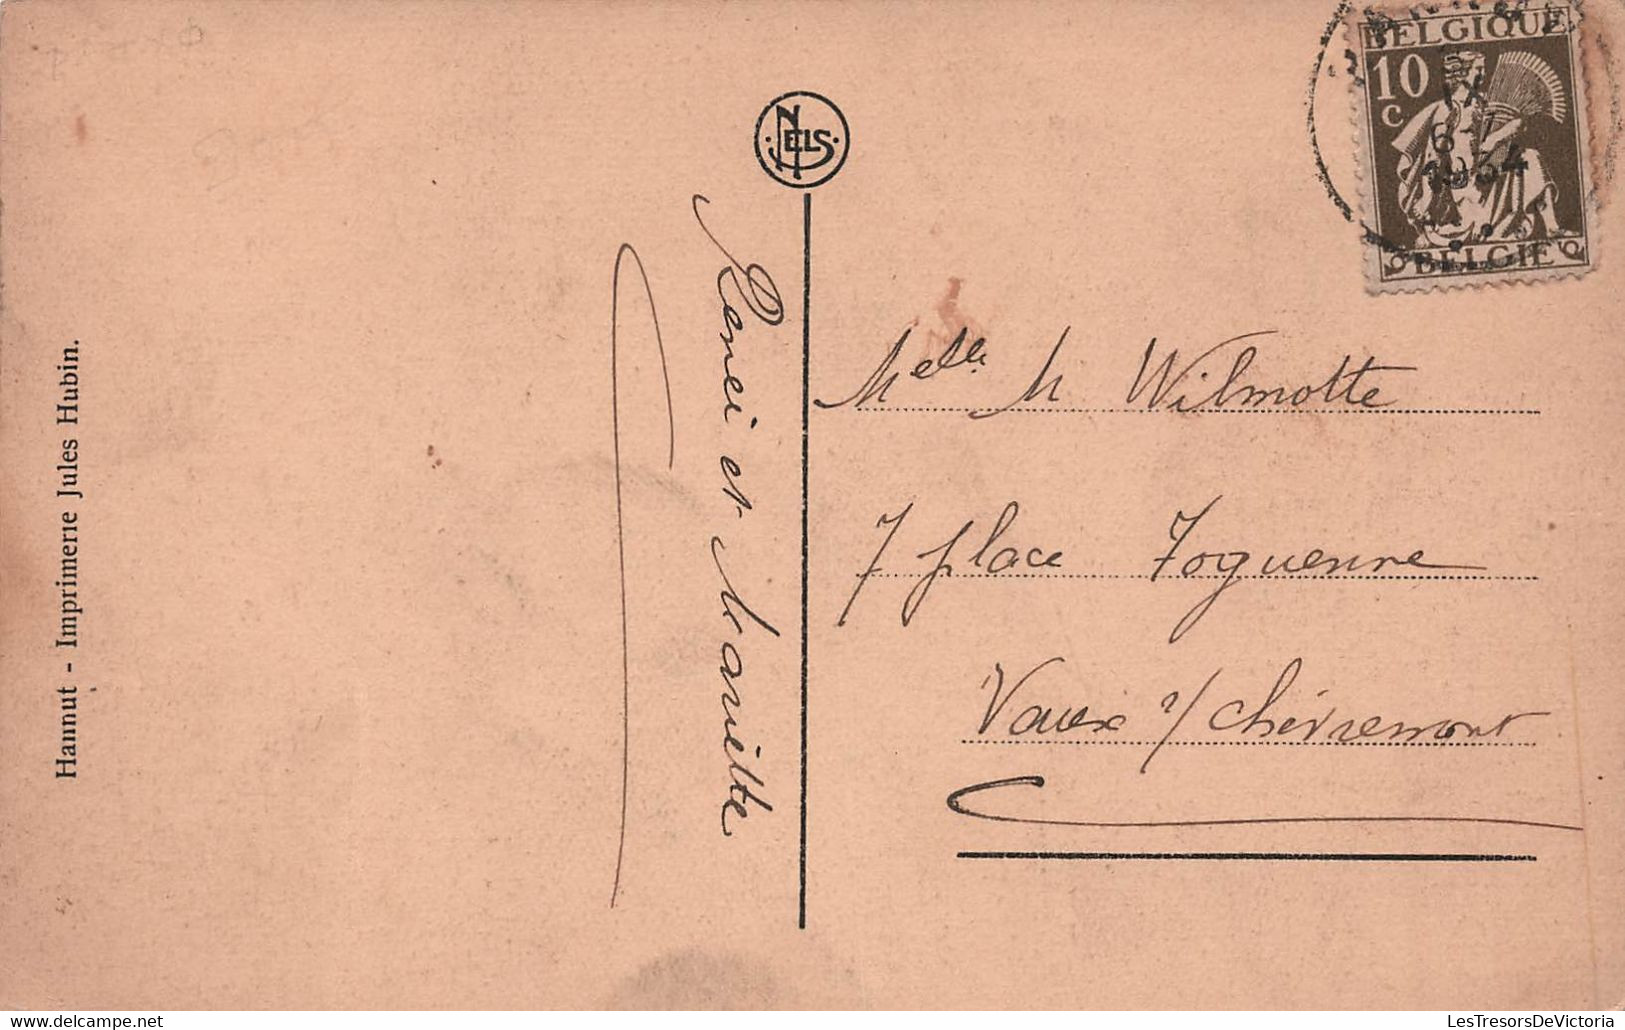 Hannut - Imprimerie Jules Hubin.
NELS
Renei et Mariette
BELGIQUE
10
C
IX
1934
BELGIË
Melle M Wilmotte
7 place Foguenne
Vaux s/ Chèvremont
www.delcampe.net
LesTresorsDeVictoria